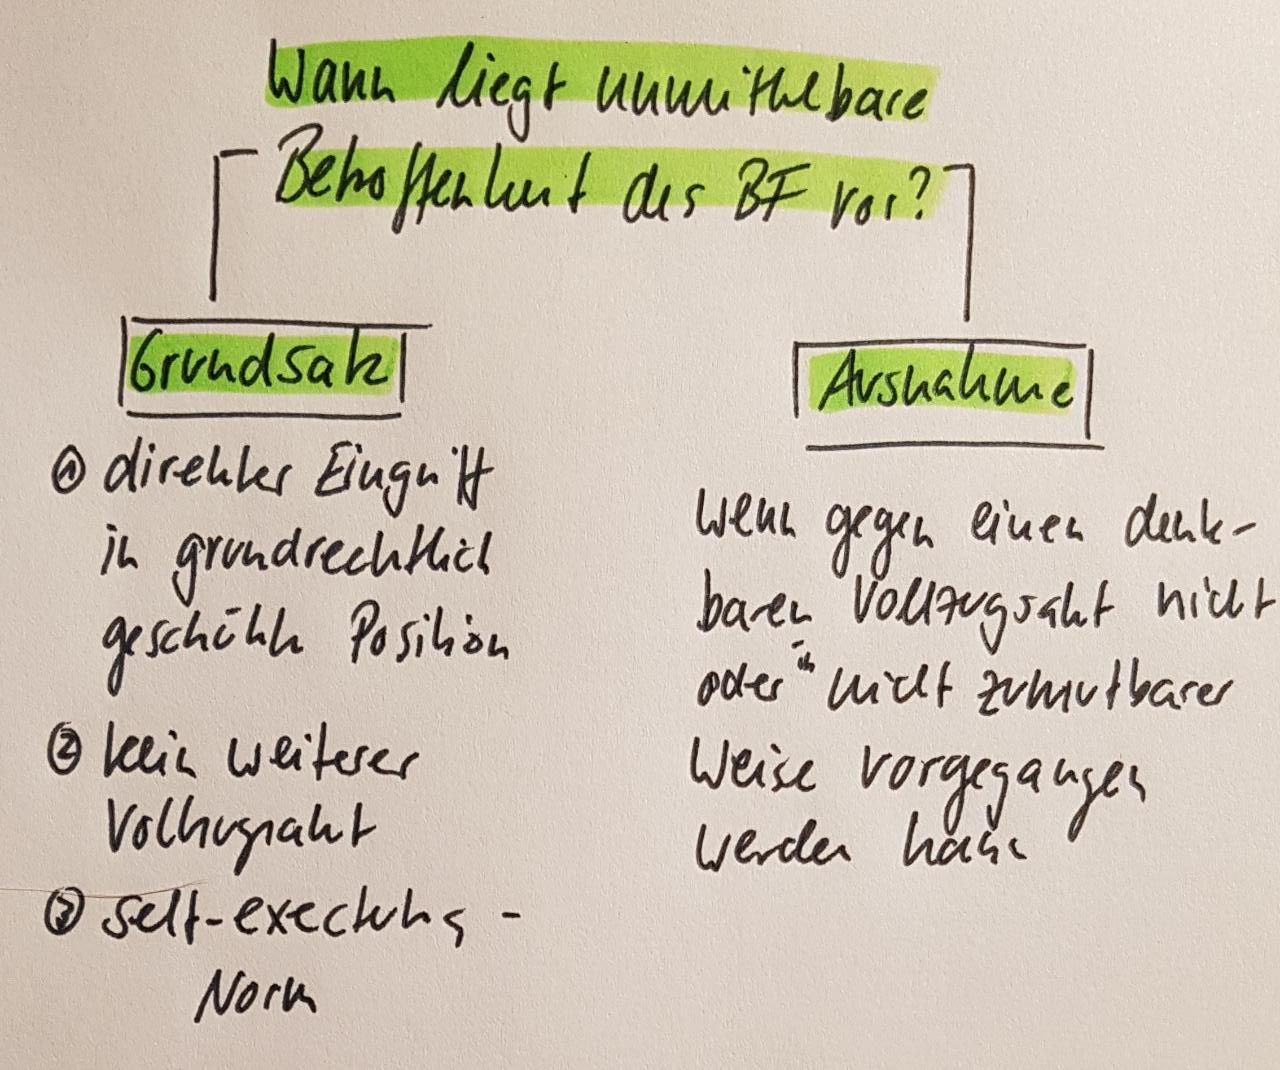 Wann liegt unmittelbare
Betroffenheit des BF vor?
Grundsatz
① direkter Eingriff
in grundrechtlich
geschützte Position
② kein weiterer
Vollzugsakt
③ self-executing-
Norm
Ausnahme
wenn gegen einen denk-
baren Vollzugsakt nicht
oder in nicht zumutbarer
Weise vorgegangen
werden kann